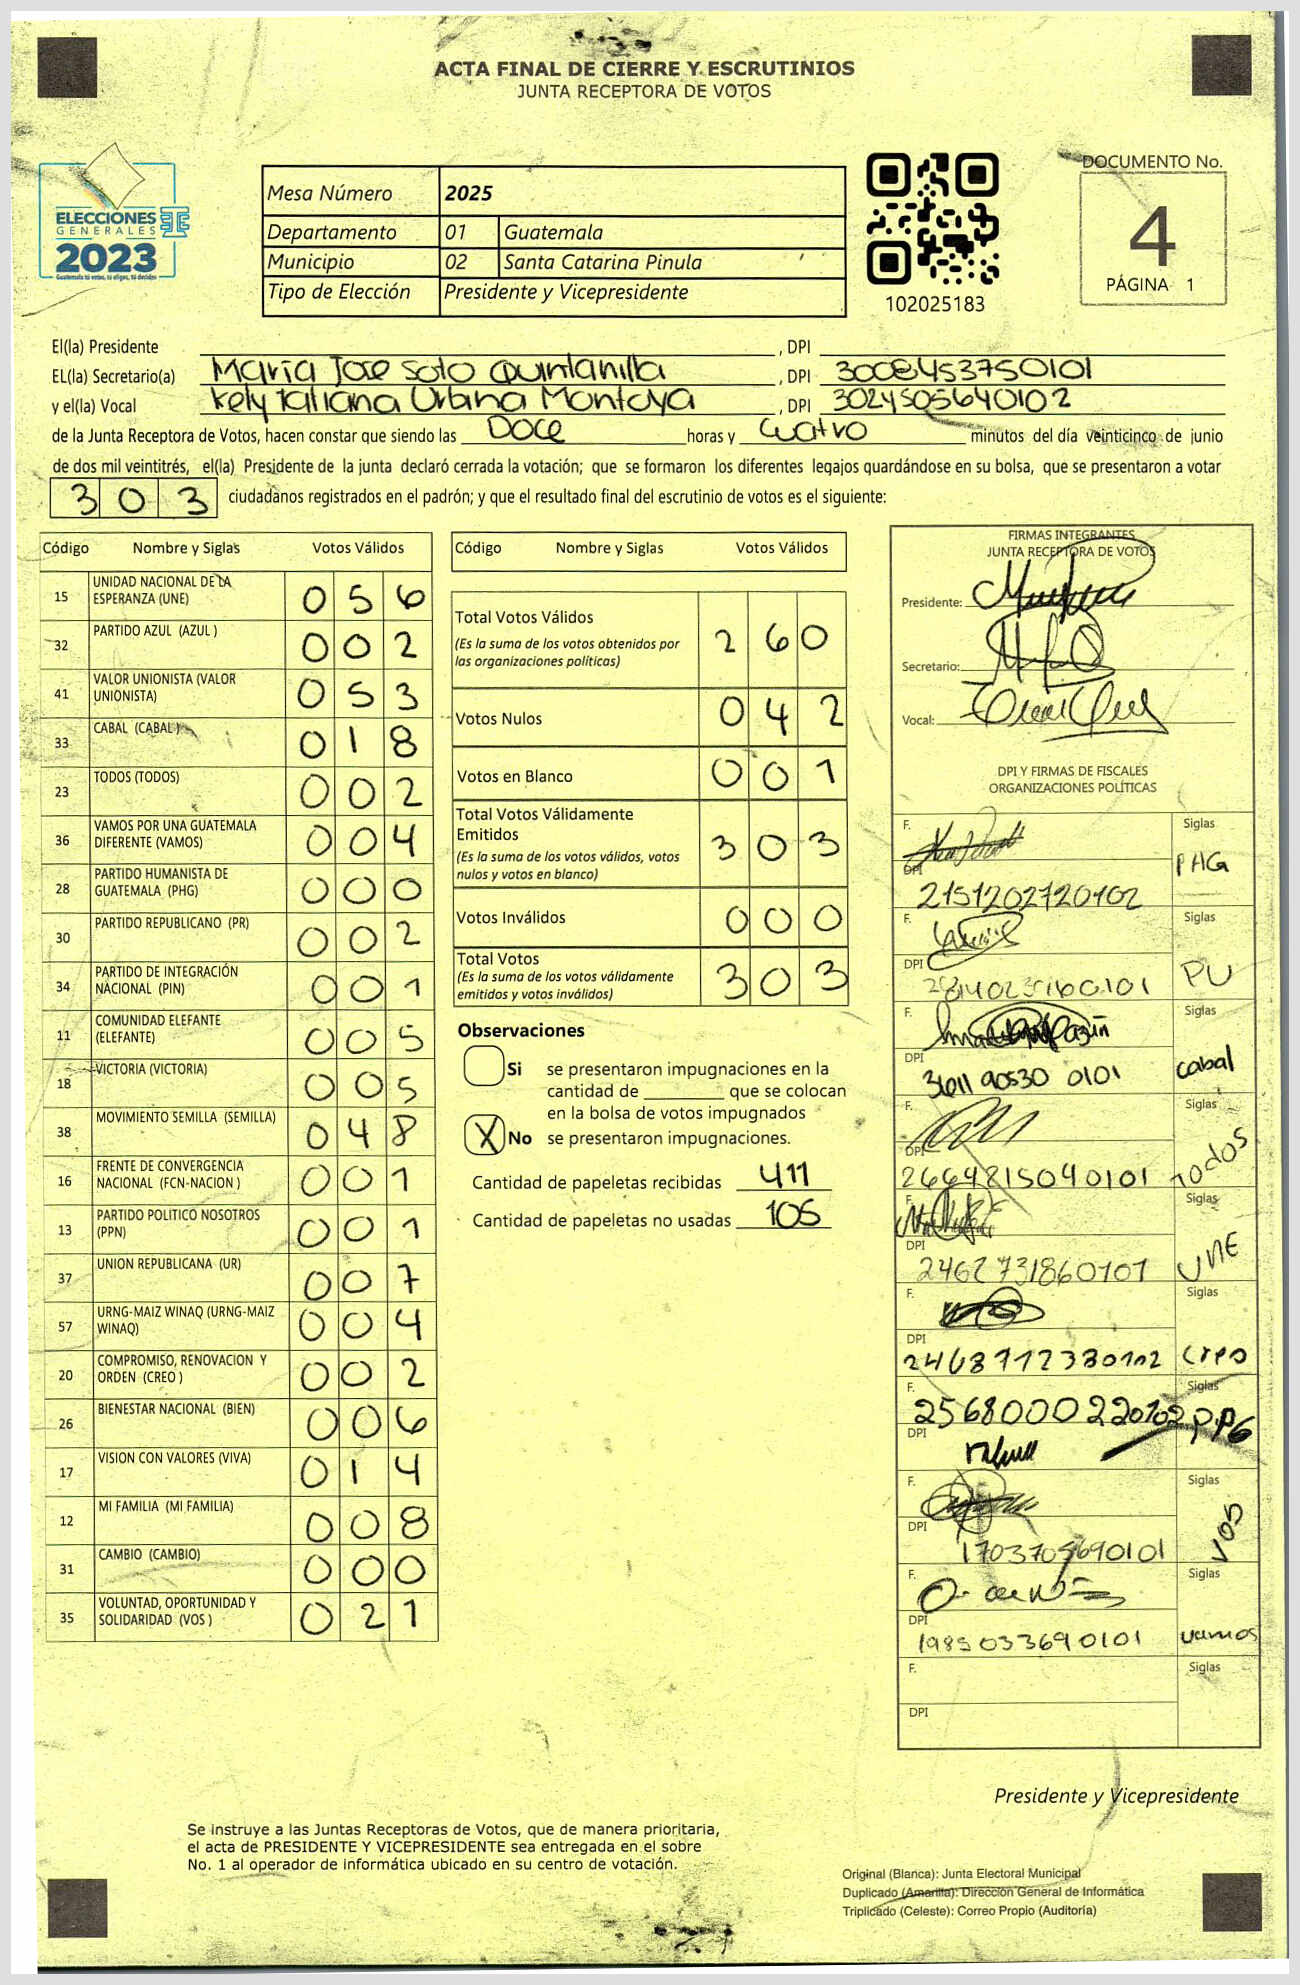 ACTA FINAL DE CIERRE Y ESCRUTINIOS
JUNTA RECEPTORA DE VOTOS
ELECCIONES
GENERALES
2023
Guatemala tú votas, tú eliges, tú decides
Mesa Número 2025
Departamento 01 Guatemala
Municipio 02 Santa Catarina Pinula
Tipo de Elección Presidente y Vicepresidente
102025183
DOCUMENTO No.
4
PÁGINA 1
El(la) Presidente , DPI
EL(la) Secretario(a) Maria Jose Soto Quintanilla , DPI 3008453750101
y el(la) Vocal Kely Tatiana Urbina Montoya , DPI 3024505640102
de la Junta Receptora de Votos, hacen constar que siendo las Doce horas y Cuatro minutos del día veinticinco de junio
de dos mil veintitrés, el(la) Presidente de la junta declaró cerrada la votación; que se formaron los diferentes legajos quardándose en su bolsa, que se presentaron a votar
303 ciudadanos registrados en el padrón; y que el resultado final del escrutinio de votos es el siguiente:
Código Nombre y Siglas Votos Válidos
15 UNIDAD NACIONAL DE LA ESPERANZA (UNE) 056
32 PARTIDO AZUL (AZUL ) 002
41 VALOR UNIONISTA (VALOR UNIONISTA) 053
33 CABAL (CABAL ) 018
23 TODOS (TODOS) 002
36 VAMOS POR UNA GUATEMALA DIFERENTE (VAMOS) 004
28 PARTIDO HUMANISTA DE GUATEMALA (PHG) 000
30 PARTIDO REPUBLICANO (PR) 002
34 PARTIDO DE INTEGRACIÓN NACIONAL (PIN) 001
11 COMUNIDAD ELEFANTE (ELEFANTE) 005
18 VICTORIA (VICTORIA) 005
38 MOVIMIENTO SEMILLA (SEMILLA) 048
16 FRENTE DE CONVERGENCIA NACIONAL (FCN-NACION ) 001
13 PARTIDO POLITICO NOSOTROS (PPN) 001
37 UNION REPUBLICANA (UR) 007
57 URNG-MAIZ WINAQ (URNG-MAIZ WINAQ) 004
20 COMPROMISO, RENOVACION Y ORDEN (CREO ) 002
26 BIENESTAR NACIONAL (BIEN) 006
17 VISION CON VALORES (VIVA) 014
12 MI FAMILIA (MI FAMILIA) 008
31 CAMBIO (CAMBIO) 000
35 VOLUNTAD, OPORTUNIDAD Y SOLIDARIDAD (VOS ) 021
Código Nombre y Siglas Votos Válidos
Total Votos Válidos 260
(Es la suma de los votos obtenidos por
las organizaciones políticas)
Votos Nulos 042
Votos en Blanco 001
Total Votos Válidamente
Emitidos 303
(Es la suma de los votos válidos, votos
nulos y votos en blanco)
Votos Inválidos 000
Total Votos 303
(Es la suma de los votos válidamente
emitidos y votos inválidos)
Observaciones
Si se presentaron impugnaciones en la
cantidad de ________ que se colocan
en la bolsa de votos impugnados
X No se presentaron impugnaciones.
Cantidad de papeletas recibidas 411
Cantidad de papeletas no usadas 105
FIRMAS INTEGRANTES
JUNTA RECEPTORA DE VOTOS
Presidente:
Secretario:
Vocal:
DPI Y FIRMAS DE FISCALES
ORGANIZACIONES POLÍTICAS
F. Siglas
DPI 2151202720102 PHG
F. Siglas
DPI PU
F. Siglas
DPI cabal
F. Siglas
DPI 2664815040101 Todos
F. Siglas
DPI 2462731860101 UNE
F. Siglas
DPI 2468712380102 Creo
F. 2568000220102 Siglas
DPI
F. Siglas
DPI VOS
F. Siglas
DPI 1985033690101 vamos
F. Siglas
DPI
Presidente y Vicepresidente
Se instruye a las Juntas Receptoras de Votos, que de manera prioritaria,
el acta de PRESIDENTE Y VICEPRESIDENTE sea entregada en el sobre
No. 1 al operador de informática ubicado en su centro de votación.
Original (Blanca): Junta Electoral Municipal
Duplicado (Amarilla): Dirección General de Informática
Triplicado (Celeste): Correo Propio (Auditoría)